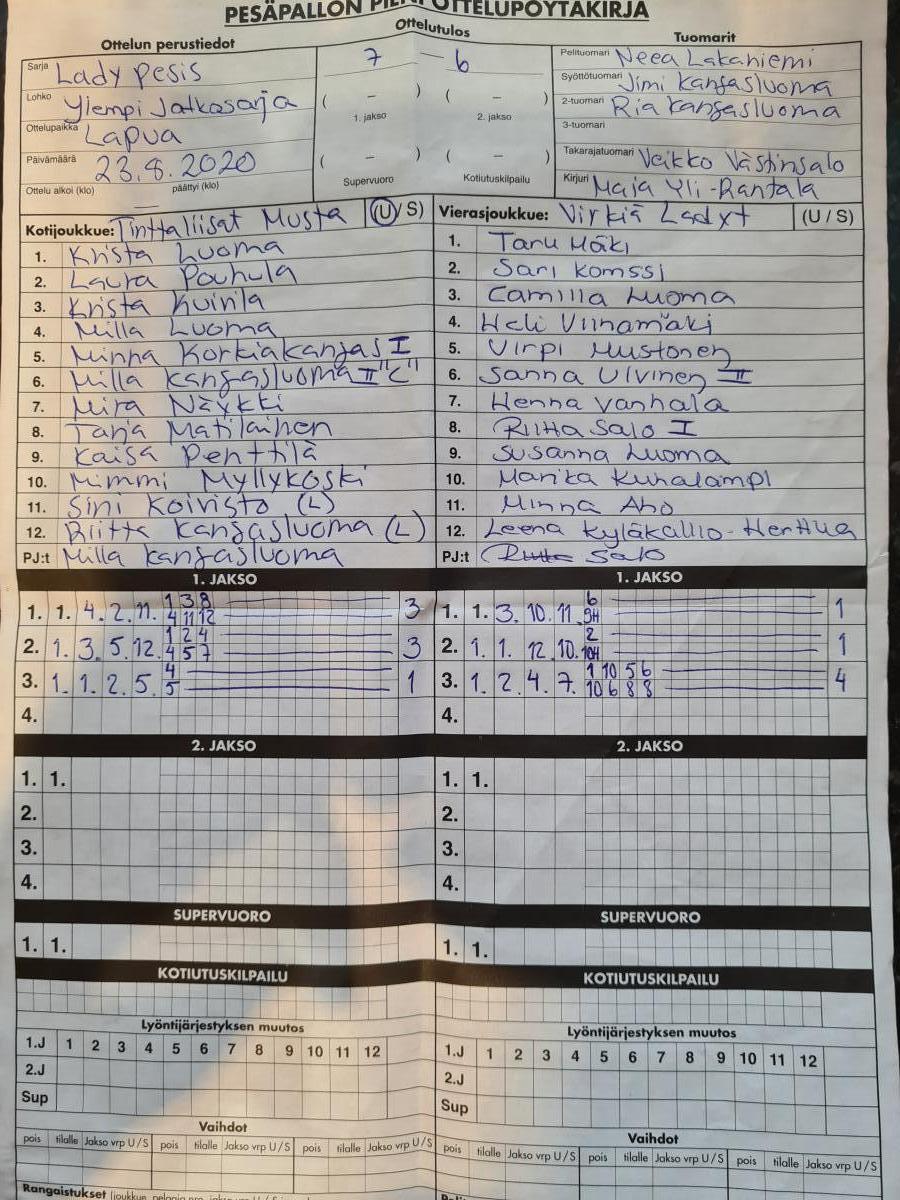 PESÄPALLON PIENOTTELUPÖYTÄKIRJA
Ottelun perustiedot
Sarja Lady pesis
Lohko Ylempi Jatkosarja
Ottelupaikka Lapua
Päivämäärä 23.8.2020
Ottelu alkoi (klo) — päättyi (klo)
Ottelutulos
7 – 6
( – ) ( – )
1. jakso 2. jakso
( – ) ( – )
Supervuoro Kotiutuskilpailu
Tuomarit
Pelituomari Neea Lakaniemi
Syöttötuomari Jimi Kangasluoma
2-tuomari Ria Kangasluoma
3-tuomari
Takarajatuomari Veikko Västinsalo
Kirjuri Maija Yli-Rantala
Kotijoukkue: Tinttaliisat Musta (U/S)
1. Krista Luoma
2. Laura Pouhula
3. Krista Kuirila
4. Milla Luoma
5. Minna Korkiakangas I
6. Milla Kangasluoma II "C"
7. Mira Näykki
8. Tarja Matilainen
9. Kaisa Penttilä
10. Mimmi Myllykoski
11. Sini Koivisto (L)
12. Riitta Kangasluoma (L)
PJ:t Milla Kangasluoma
Vierasjoukkue: Virkiä Ladyt (U/S)
1. Taru Mäki
2. Sari Komssi
3. Camilla Luoma
4. Heli Viinamäki
5. Virpi Mustonen
6. Sanna Ulvinen II
7. Henna Vanhala
8. Riitta Salo I
9. Susanna Luoma
10. Marika Kuhalampi
11. Minna Aho
12. Leena Kyläkallio-Herttua
PJ:t Salo
1. JAKSO
1. 1. 4. 2. 11. 1 3 8 3
4 11 12
2. 1. 3. 5. 12. 1 2 4 3
4 5 7
3. 1. 1. 2. 5. 4 1
5
4.
2. JAKSO
1. 1.
2.
3.
4.
SUPERVUORO
1. 1.
KOTIUTUSKILPAILU
Lyöntijärjestyksen muutos
1.J 1 2 3 4 5 6 7 8 9 10 11 12
2.J
Sup
Vaihdot
pois tilalle Jakso vrp U/S pois tilalle Jakso vrp U/S pois tilalle Jakso vrp U/S
Rangaistukset
1. JAKSO
1. 1. 3. 10. 11. 6 1
9H
2. 1. 1. 12. 10. 2 1
10H
3. 1. 2. 4. 7. 1 10 5 6 4
10 6 8 8
4.
2. JAKSO
1. 1.
2.
3.
4.
SUPERVUORO
1. 1.
KOTIUTUSKILPAILU
Lyöntijärjestyksen muutos
1.J 1 2 3 4 5 6 7 8 9 10 11 12
2.J
Sup
Vaihdot
pois tilalle Jakso vrp U/S pois tilalle Jakso vrp U/S pois tilalle Jakso vrp U/S